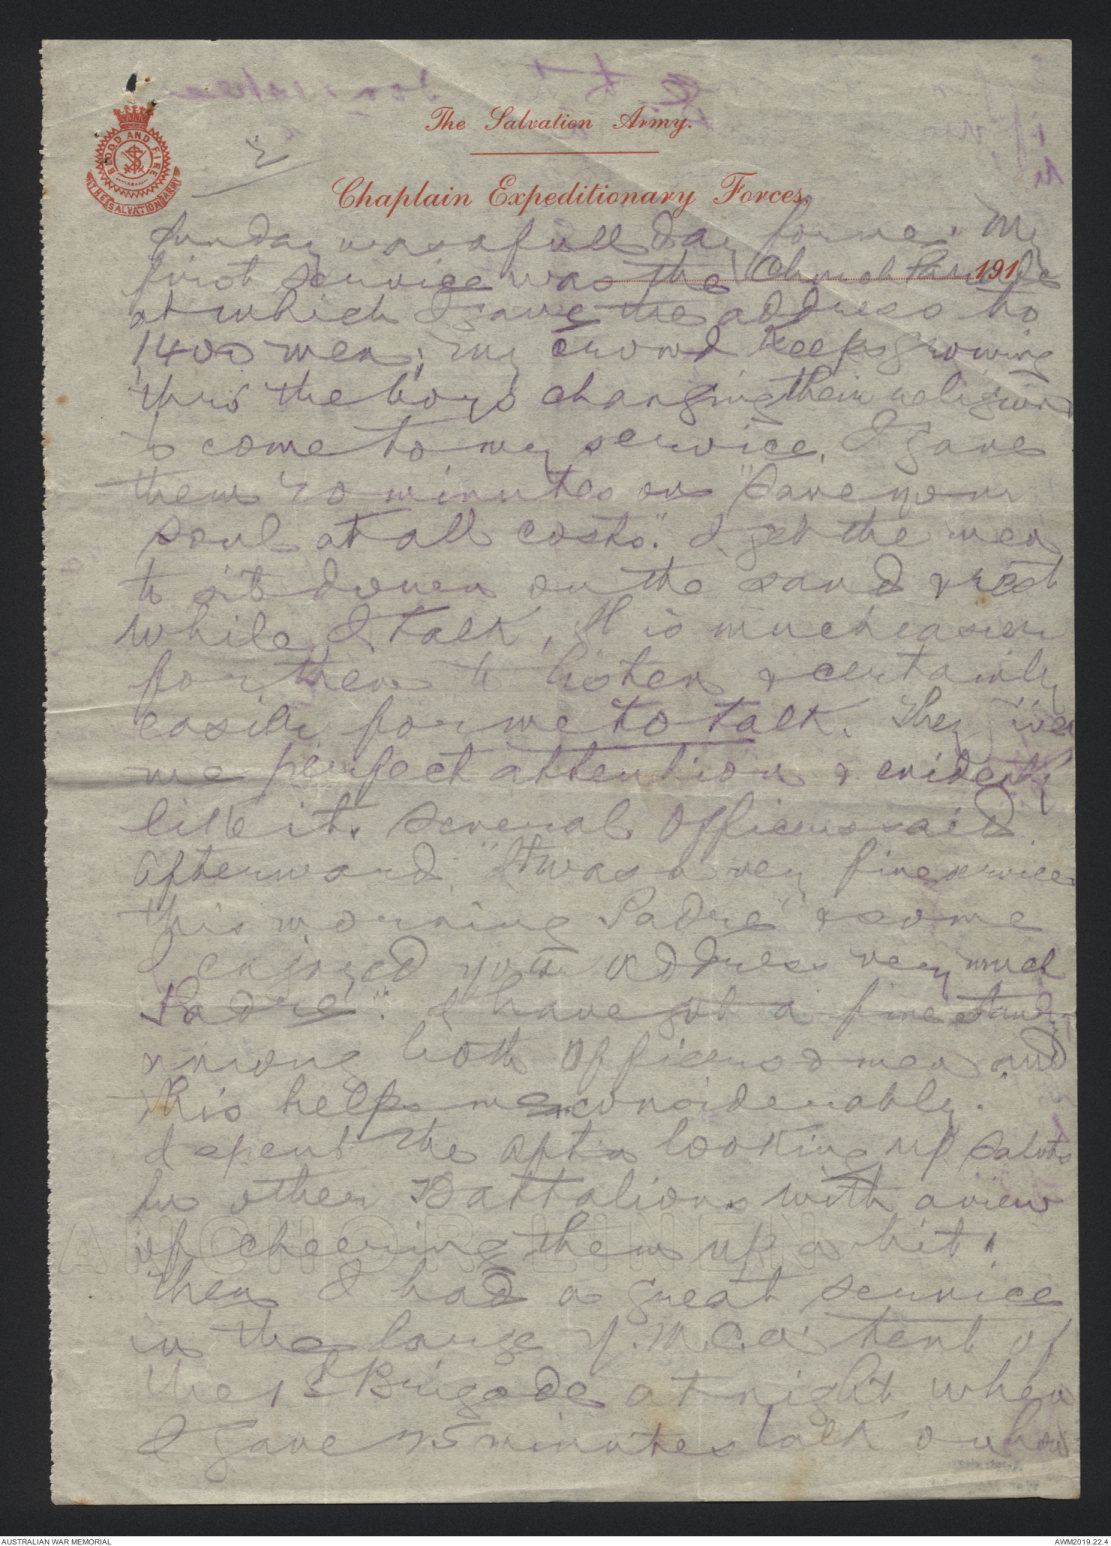 The Salvation Army.
BLOOD AND FIRE
THE SALVATION ARMY
2
Chaplain Expeditionary Forces.
191
Sunday was a full day for me. My
first service was the Church Parade
at which I gave the address to
1400 men; my crowd keeps growing
thro' the boys changing their religion
to come to my service. I gave
them 20 minutes on "Save your
soul at all costs." I get the men
to sit down on the sand & rest
while I talk, It is much easier
for them to listen & certainly
easier for me to talk. They give
me perfect attention & evidently
like it. Several Officers said
afterward, "It was a very fine service
this morning Padre" & some
I enjoyed your address very much
Padre". I have got a fine stand
among both officers & men and
this helps me considerably.
I spent the aftn looking up Salvts
in other Battalions with a view
of cheering them up a bit.
Then I had a great service
in the large Y.M.C.A. tent of
the 1st Brigade at night when
I gave 25 minutes talk on how
ANCHOR LINEN
AUSTRALIAN WAR MEMORIAL
AWM2019.22.4